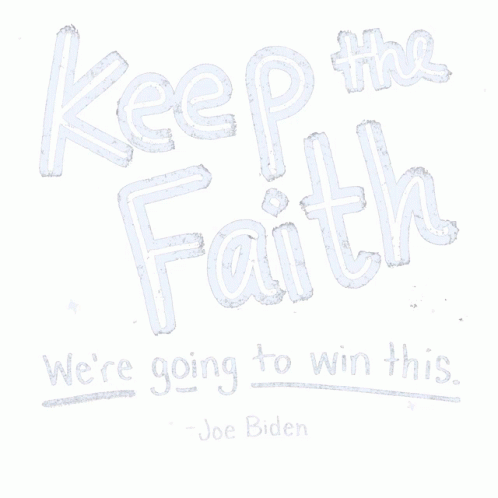 Keep the
Faith
We're going to win this.
-Joe Biden